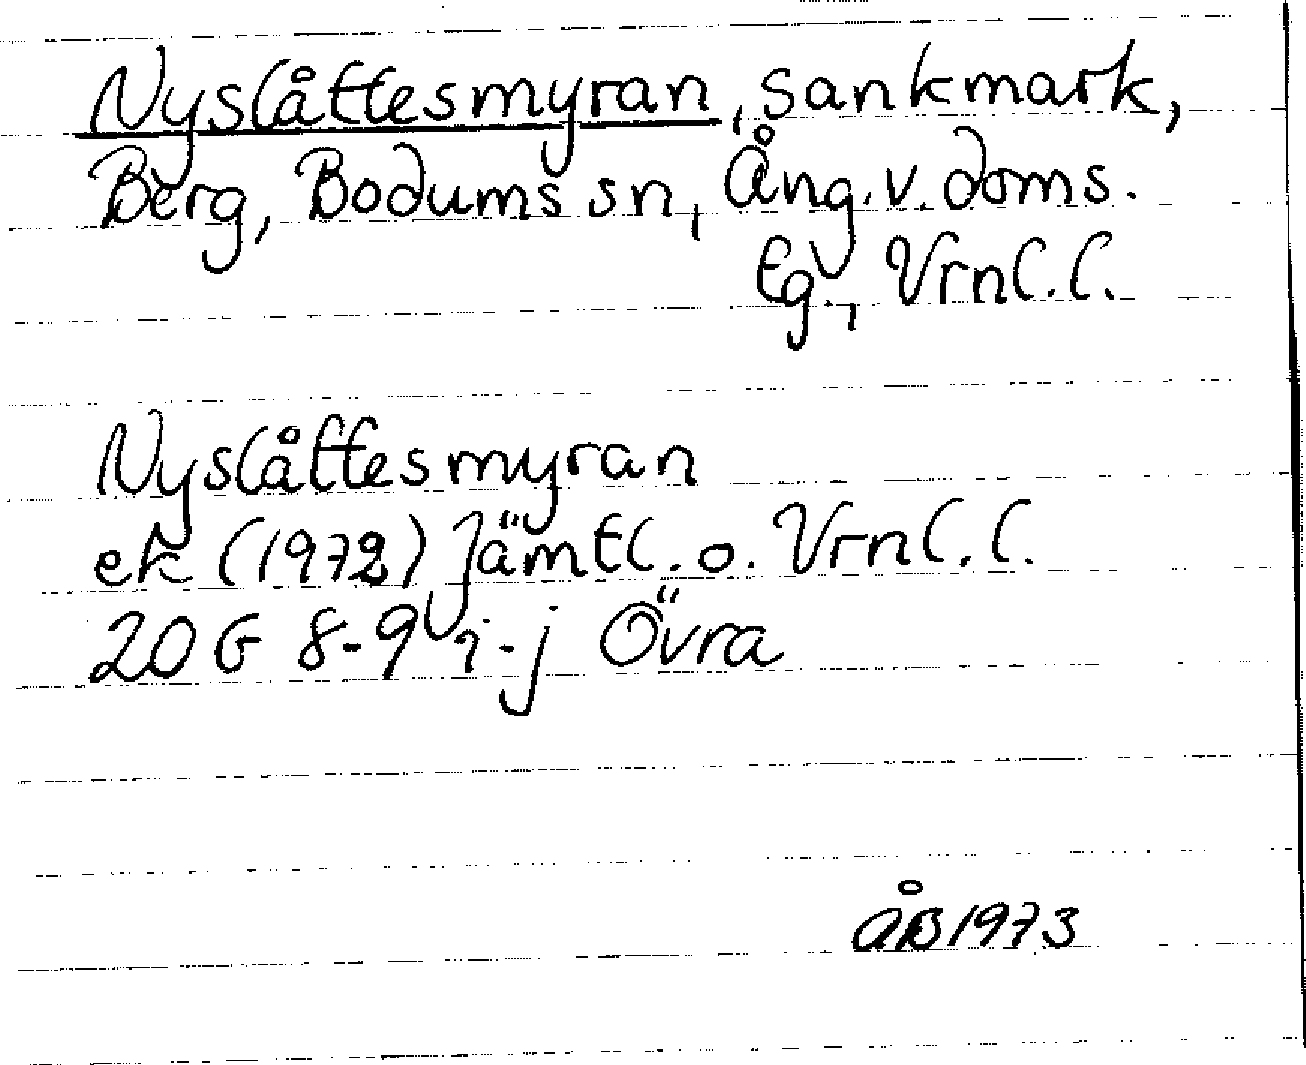 Nyslåttesmyran, sankmark,
Berg, Bodums sn, Ång. v. doms.
tg., Vrnl. l.
Nyslåttesmyran
ek (1972) Jämtl. o. Vrnl. l.
20 G 8-9 i-j Övra
ÅB 1973